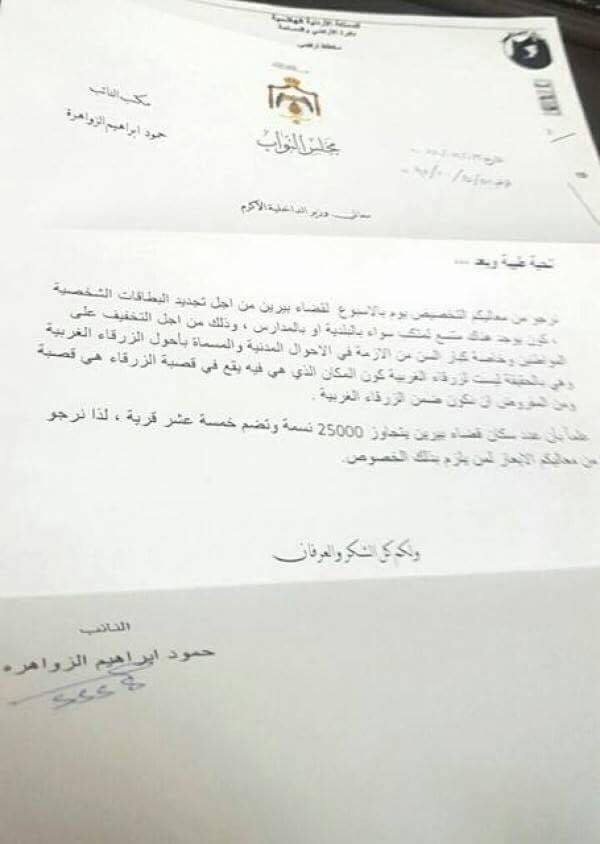 المملكة الأردنية الهاشمية
دائرة الأراضي والمساحة
مجلس النواب
مكتب النائب
حمود ابراهيم الزواهرة
معالي وزير الداخلية الأكرم
تحية طيبة وبعد ...
نرجو من معاليكم التخصيص يوم بالاسبوع لقضاء بيرين من اجل تجديد البطاقات الشخصية
، كون يوجد هناك متسع لمكتب سواء بالبلدية او بالمدارس ، وذلك من اجل التخفيف على
المواطنين وخاصة كبار السن من الازمة في الاحوال المدنية والمسماة بأحوال الزرقاء الغربية
وهي بالحقيقة ليست لزرقاء الغربية كون المكان الذي هي فيه يقع في قصبة الزرقاء هي قصبة
ومن المفروض ان تكون ضمن الزرقاء الغربية .
علماً بأن عدد سكان قضاء بيرين يتجاوز 25000 نسمة وتضم خمسة عشر قرية ، لذا نرجو
من معاليكم الايعاز لمن يلزم بذلك الخصوص.
ولكم كل الشكر والعرفان
النائب
حمود ابراهيم الزواهره